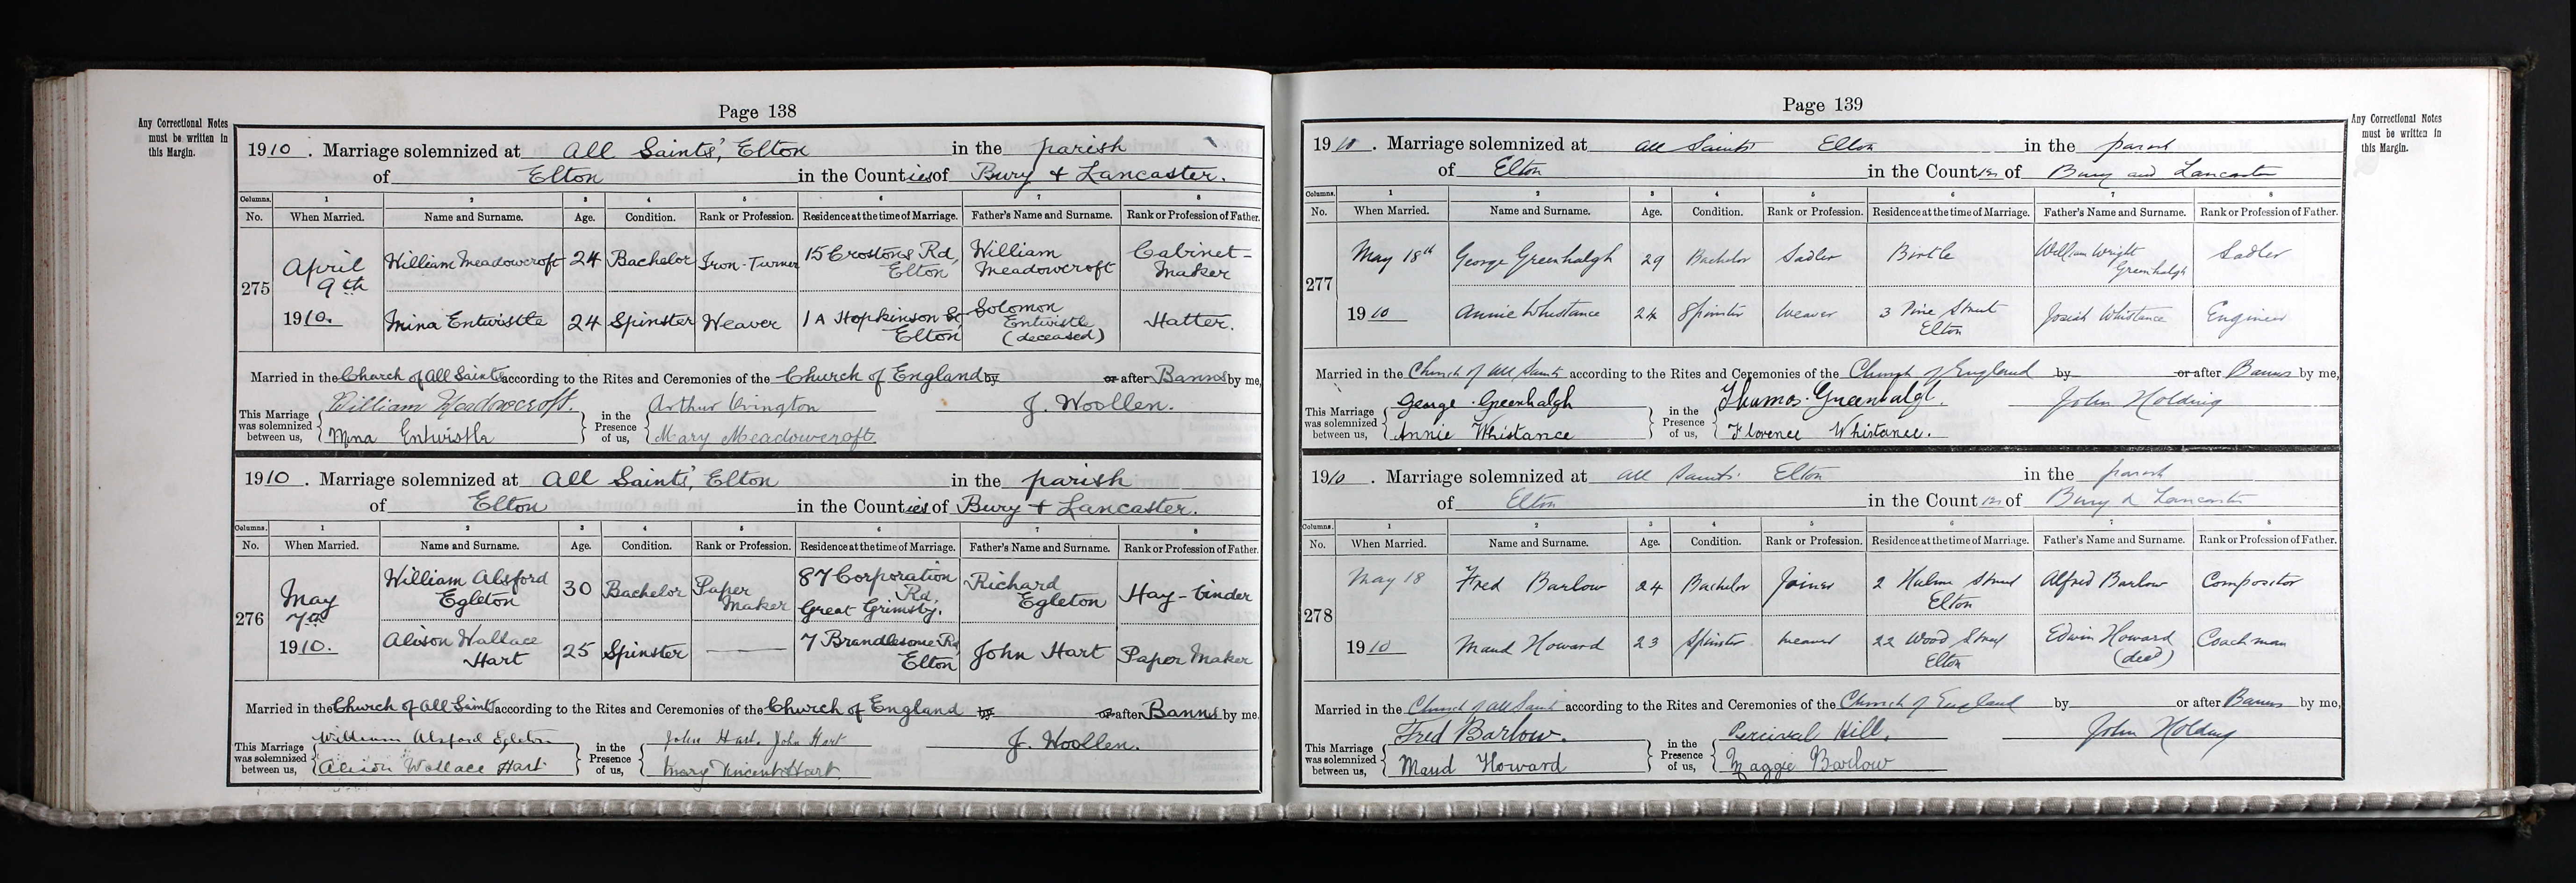 Page 138
Any Correctional Notes
must be written in
this Margin.
1910. Marriage solemnized at All Saints', Elton in the parish
of Elton in the Counties of Bury & Lancaster.
Columns. 1 2 3 4 5 6 7 8
No. When Married. Name and Surname. Age. Condition. Rank or Profession. Residence at the time of Marriage. Father's Name and Surname. Rank or Profession of Father.
275 April 9th 1910. William Meadowcroft 24 Bachelor Iron-Turner 15 Crostons Rd, Elton William Meadowcroft Cabinet-Maker
Mina Entwistle 24 Spinster Weaver 1A Hopkinson St, Elton Solomon Entwistle (deceased) Hatter.
Married in the Church of All Saints according to the Rites and Ceremonies of the Church of England by or after Banns by me,
This Marriage was solemnized between us, William Meadowcroft. Mina Entwistle in the Presence of us, Arthur Mary Meadowcroft. J. Woollen.
1910. Marriage solemnized at All Saints', Elton in the parish
of Elton in the Counties of Bury & Lancaster.
Columns. 1 2 3 4 5 6 7 8
No. When Married. Name and Surname. Age. Condition. Rank or Profession. Residence at the time of Marriage. Father's Name and Surname. Rank or Profession of Father.
276 May 7th 1910. William Alsford Egleton 30 Bachelor Paper Maker 87 Corporation Rd, Great Grimsby. Richard Egleton Hay-binder
Alison Wallace Hart 25 Spinster 7 Brandlesome Rd, Elton John Hart Paper Maker
Married in the Church of All Saints according to the Rites and Ceremonies of the Church of England by or after Banns by me,
This Marriage was solemnized between us, William Alsford Egleton Alison Wallace Hart in the Presence of us, John Hart. John Hart Mary Vincent Hart. J. Woollen.
Page 139
Any Correctional Notes
must be written in
this Margin.
1910. Marriage solemnized at All Saints Elton in the parish
of Elton in the Counties of Bury and Lancaster
Columns. 1 2 3 4 5 6 7 8
No. When Married. Name and Surname. Age. Condition. Rank or Profession. Residence at the time of Marriage. Father's Name and Surname. Rank or Profession of Father.
277 May 18th 1910 George Greenhalgh 29 Bachelor Sadler Birtle William Wright Greenhalgh Sadler
Annie Whistance 24 Spinster Weaver 3 Pine Street Elton Josiah Whistance Engineer
Married in the Church of All Saints according to the Rites and Ceremonies of the Church of England by or after Banns by me,
This Marriage was solemnized between us, George Greenhalgh Annie Whistance in the Presence of us, Thomas Greenhalgh. Florence Whistance. John Holding
1910. Marriage solemnized at All Saints Elton in the parish
of Elton in the Counties of Bury & Lancaster
Columns. 1 2 3 4 5 6 7 8
No. When Married. Name and Surname. Age. Condition. Rank or Profession. Residence at the time of Marriage. Father's Name and Surname. Rank or Profession of Father.
278 May 18 1910 Fred Barlow 24 Bachelor Joiner 2 Hulme Street Elton Alfred Barlow Compositor
Maud Howard 23 Spinster Weaver 22 Wood Street Elton Edwin Howard (decd) Coachman
Married in the Church of All Saints according to the Rites and Ceremonies of the Church of England by or after Banns by me,
This Marriage was solemnized between us, Fred Barlow. Maud Howard in the Presence of us, Percival Hill. Maggie Barlow John Holding